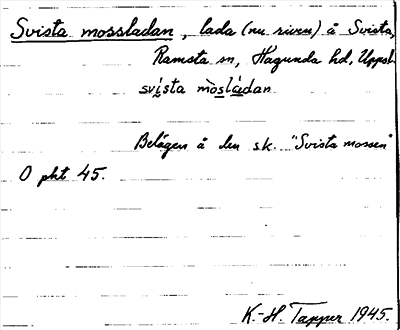 Svista mossladan, lada (nu riven) å Svista,
Ramsta sn, Hagunda hd, Uppsl.
svìsta mòsládan
Belägen å den s.k. "Svista mossen"
O pkt 45.
K.-H. Tapper 1945.